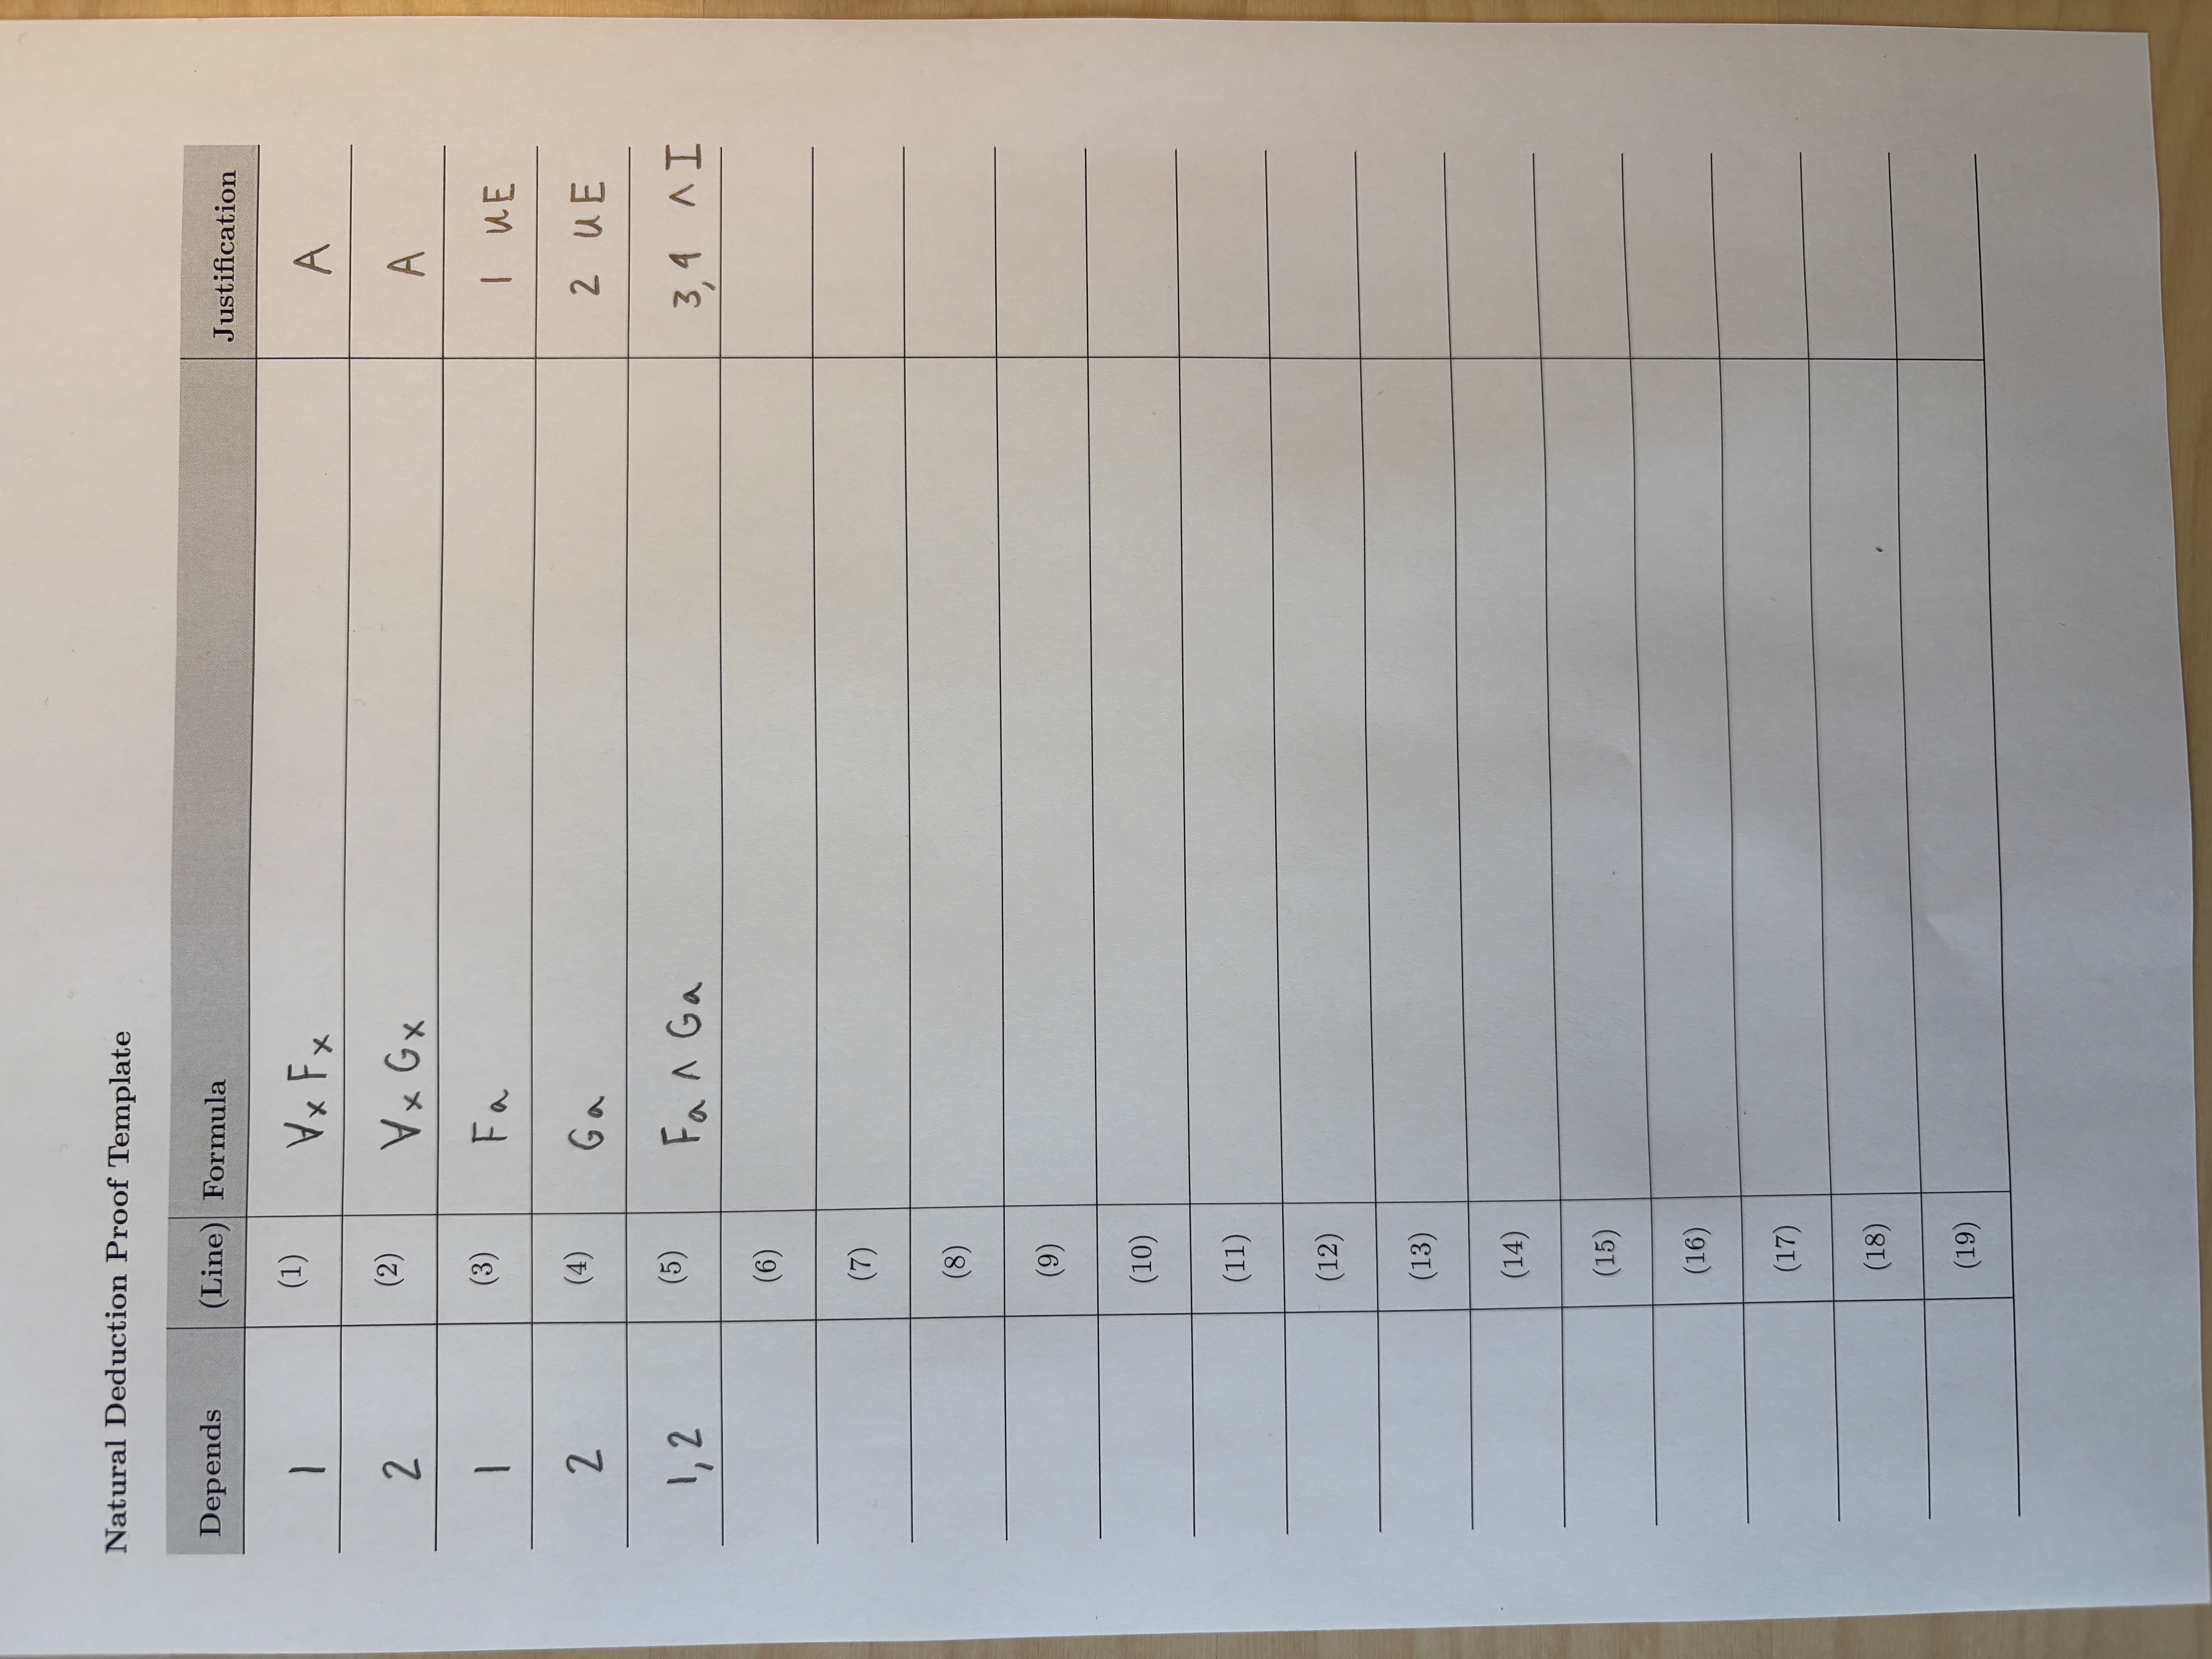 Natural Deduction Proof Template
Depends (Line) Formula Justification
1 (1) ∀x Fx A
2 (2) ∀x Gx A
1 (3) Fa 1 UE
2 (4) Ga 2 UE
1,2 (5) Fa ∧ Ga 3,4 ∧I
(6)
(7)
(8)
(9)
(10)
(11)
(12)
(13)
(14)
(15)
(16)
(17)
(18)
(19)